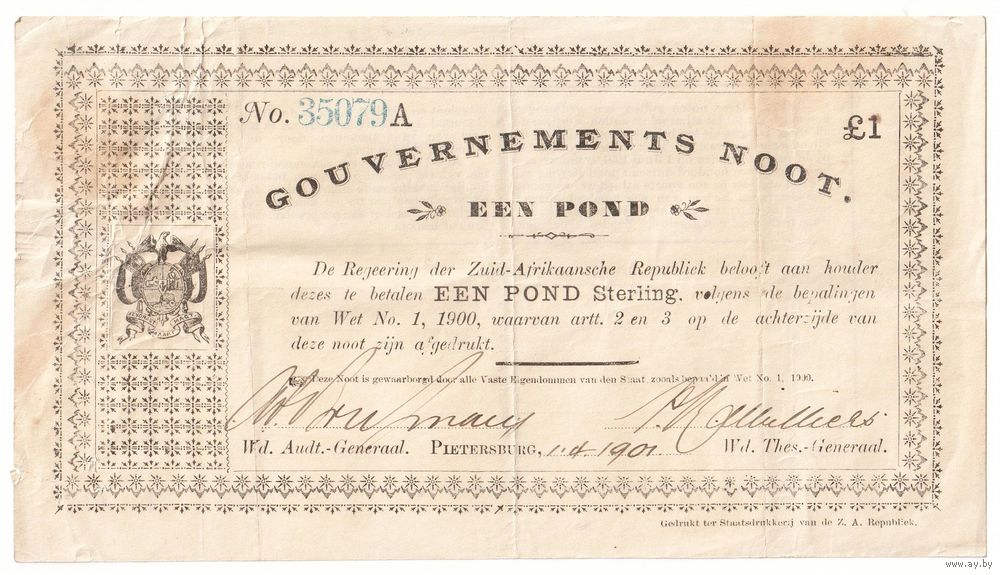 No. 35079 A
£1
GOUVERNEMENTS NOOT.
EEN POND
De Regeering der Zuid-Afrikaansche Republiek belooft aan houder
dezes te betalen EEN POND Sterling, volgens de bepalingen
van Wet No. 1, 1900, waarvan artt. 2 en 3 op de achterzijde van
deze noot zijn afgedrukt.
Deze Noot is gewaarborgd door alle Vaste Eigendommen van den Staat, zooals bepaald in Wet No. 1, 1900.
Wd. Audt.-Generaal. PIETERSBURG, 1.4.1901 Wd. Thes.-Generaal.
Gedrukt ter Staatsdrukkerij van de Z. A. Republiek.
www.ay.by